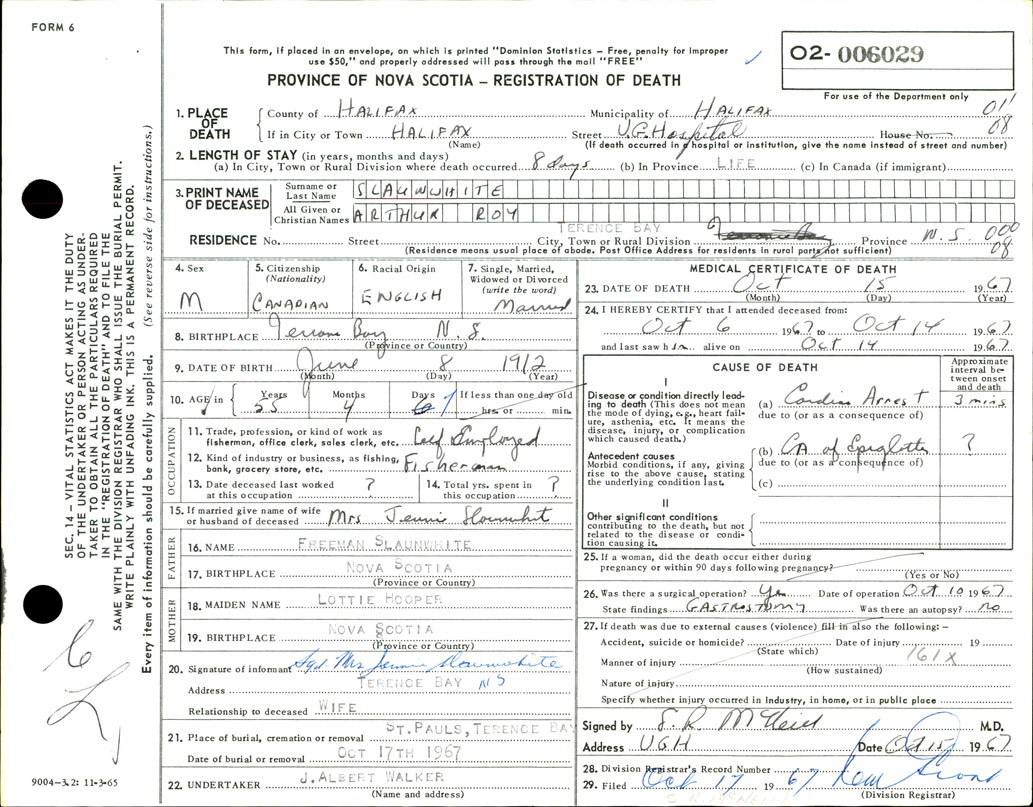 FORM 6
This form, if placed in an envelope, on which is printed "Dominion Statistics – Free, penalty for improper
use $50," and properly addressed will pass through the mail "FREE"
O2- 006029
PROVINCE OF NOVA SCOTIA – REGISTRATION OF DEATH
For use of the Department only
1. PLACE OF DEATH
County of HALIFAX Municipality of HALIFAX 01'
If in City or Town HALIFAX Street V.G. Hospital House No. 08
(Name) (If death occurred in a hospital or institution, give the name instead of street and number)
2. LENGTH OF STAY (in years, months and days)
(a) In City, Town or Rural Division where death occurred 8 days (b) In Province LIFE (c) In Canada (if immigrant)
3. PRINT NAME OF DECEASED
Surname or Last Name SLAUNWHITE
All Given or Christian Names ARTHUR ROY
TERENCE BAY
RESIDENCE No. Street City, Town or Rural Division Province N.S. 000
(Residence means usual place of abode. Post Office Address for residents in rural parts not sufficient) 08
4. Sex
M
5. Citizenship
(Nationality)
CANADIAN
6. Racial Origin
ENGLISH
7. Single, Married,
Widowed or Divorced
(write the word)
Married
8. BIRTHPLACE Terrance Bay N.S.
(Province or Country)
9. DATE OF BIRTH June 8 1912
(Month) (Day) (Year)
10. AGE in Years Months Days If less than one day old
55 4 7 hrs. or min.
OCCUPATION
11. Trade, profession, or kind of work as
fisherman, office clerk, sales clerk, etc. Self Employed
12. Kind of industry or business, as fishing,
bank, grocery store, etc. Fisherman
13. Date deceased last worked
at this occupation ?
14. Total yrs. spent in
this occupation ?
15. If married give name of wife
or husband of deceased Mrs Jennie Slaunwhit
FATHER
16. NAME FREEMAN SLAUNWHITE
17. BIRTHPLACE NOVA SCOTIA
(Province or Country)
MOTHER
18. MAIDEN NAME LOTTIE HOOPER
19. BIRTHPLACE NOVA SCOTIA
(Province or Country)
20. Signature of informant Sgd Mrs Jennie Slaunwhite
Address TERENCE BAY NS
Relationship to deceased WIFE
21. Place of burial, cremation or removal ST. PAULS, TERENCE BAY
Date of burial or removal OCT 17TH 1967
22. UNDERTAKER J. ALBERT WALKER
(Name and address)
MEDICAL CERTIFICATE OF DEATH
23. DATE OF DEATH Oct 15 1967
(Month) (Day) (Year)
24. I HEREBY CERTIFY that I attended deceased from:
Oct 6 1967 to Oct 14 1967
and last saw him alive on Oct 14 1967
CAUSE OF DEATH
Approximate
interval be-
tween onset
and death
I
Disease or condition directly lead-
ing to death (This does not mean
the mode of dying, e.g., heart fail-
ure, asthenia, etc. It means the
disease, injury, or complication
which caused death.)
(a) Cardiac Arrest 3 mins
due to (or as a consequence of)
Antecedent causes
Morbid conditions, if any, giving
rise to the above cause, stating
the underlying condition last.
(b) CA of Epiglottis ?
due to (or as a consequence of)
(c)
II
Other significant conditions
contributing to the death, but not
related to the disease or condi-
tion causing it.
25. If a woman, did the death occur either during
pregnancy or within 90 days following pregnancy?
(Yes or No)
26. Was there a surgical operation? Yes Date of operation Oct 10 1967
State findings GASTROSTOMY Was there an autopsy? no
27. If death was due to external causes (violence) fill in also the following: –
Accident, suicide or homicide? Date of injury 19
(State which) 161X
Manner of injury
(How sustained)
Nature of injury
Specify whether injury occurred in industry, in home, or in public place
Signed by M.D.
Address VGH Date Oct 15 1967
28. Division Registrar's Record Number
29. Filed Oct 17 1967
(Division Registrar)
SEC. 14 – VITAL STATISTICS ACT MAKES IT THE DUTY
OF THE UNDERTAKER OR PERSON ACTING AS UNDER-
TAKER TO OBTAIN ALL THE PARTICULARS REQUIRED
IN THE "REGISTRATION OF DEATH" AND TO FILE THE
SAME WITH THE DIVISION REGISTRAR WHO SHALL ISSUE THE BURIAL PERMIT.
WRITE PLAINLY WITH UNFADING INK. THIS IS A PERMANENT RECORD.
Every item of information should be carefully supplied. (See reverse side for instructions.)
9004-3.2: 11-3-65